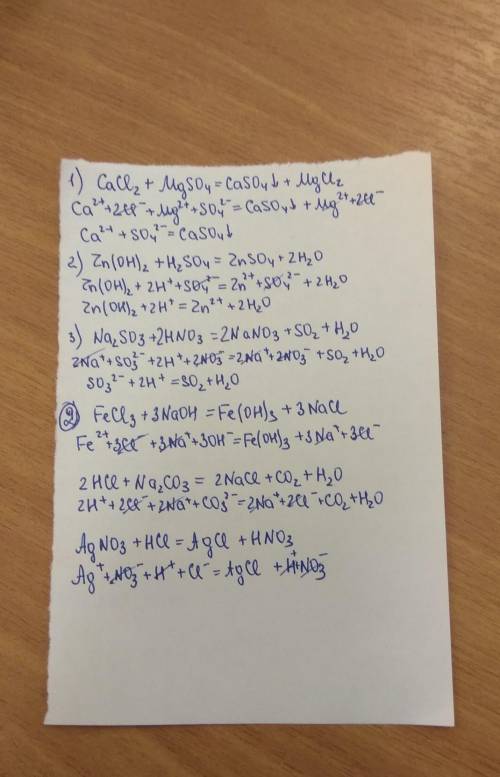 1) CaCl₂ + MgSO₄ = CaSO₄↓ + MgCl₂
Ca²⁺ + 2Cl⁻ + Mg²⁺ + SO₄²⁻ = CaSO₄↓ + Mg²⁺ + 2Cl⁻
Ca²⁺ + SO₄²⁻ = CaSO₄↓
2) Zn(OH)₂ + H₂SO₄ = ZnSO₄ + 2H₂O
Zn(OH)₂ + 2H⁺ + SO₄²⁻ = Zn²⁺ + SO₄²⁻ + 2H₂O
Zn(OH)₂ + 2H⁺ = Zn²⁺ + 2H₂O
3) Na₂SO₃ + 2HNO₃ = 2NaNO₃ + SO₂ + H₂O
2Na⁺ + SO₃²⁻ + 2H⁺ + 2NO₃⁻ = 2Na⁺ + 2NO₃⁻ + SO₂ + H₂O
SO₃²⁻ + 2H⁺ = SO₂ + H₂O
2 FeCl₃ + 3NaOH = Fe(OH)₃ + 3NaCl
Fe²⁺ + 3Cl⁻ + 3Na⁺ + 3OH⁻ = Fe(OH)₃ + 3Na⁺ + 3Cl⁻
2HCl + Na₂CO₃ = 2NaCl + CO₂ + H₂O
2H⁺ + 2Cl⁻ + 2Na⁺ + CO₃²⁻ = 2Na⁺ + 2Cl⁻ + CO₂ + H₂O
AgNO₃ + HCl = AgCl + HNO₃
Ag⁺ + NO₃⁻ + H⁺ + Cl⁻ = AgCl + H⁺ + NO₃⁻